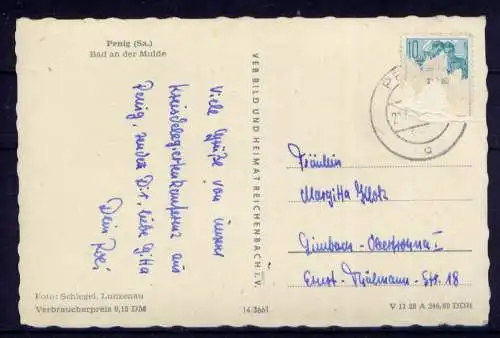 Penig (Sa.)
Bad an der Mulde
Viele Grüße von unserer
Kreisdelegiertenkonferenz aus
Penig, sendet Dir, liebe Gitta
Dein
VEB BILD UND HEIMAT REICHENBACH I. V.
10
PE
Fräulein
Margitta
Limbach-Oberfrohna I
Ernst-Thälmann-Str. 18
Foto: Schlegel, Lunzenau
Verbraucherpreis 0,15 DM
14/3661
V 11 28 A 246/60 DDR